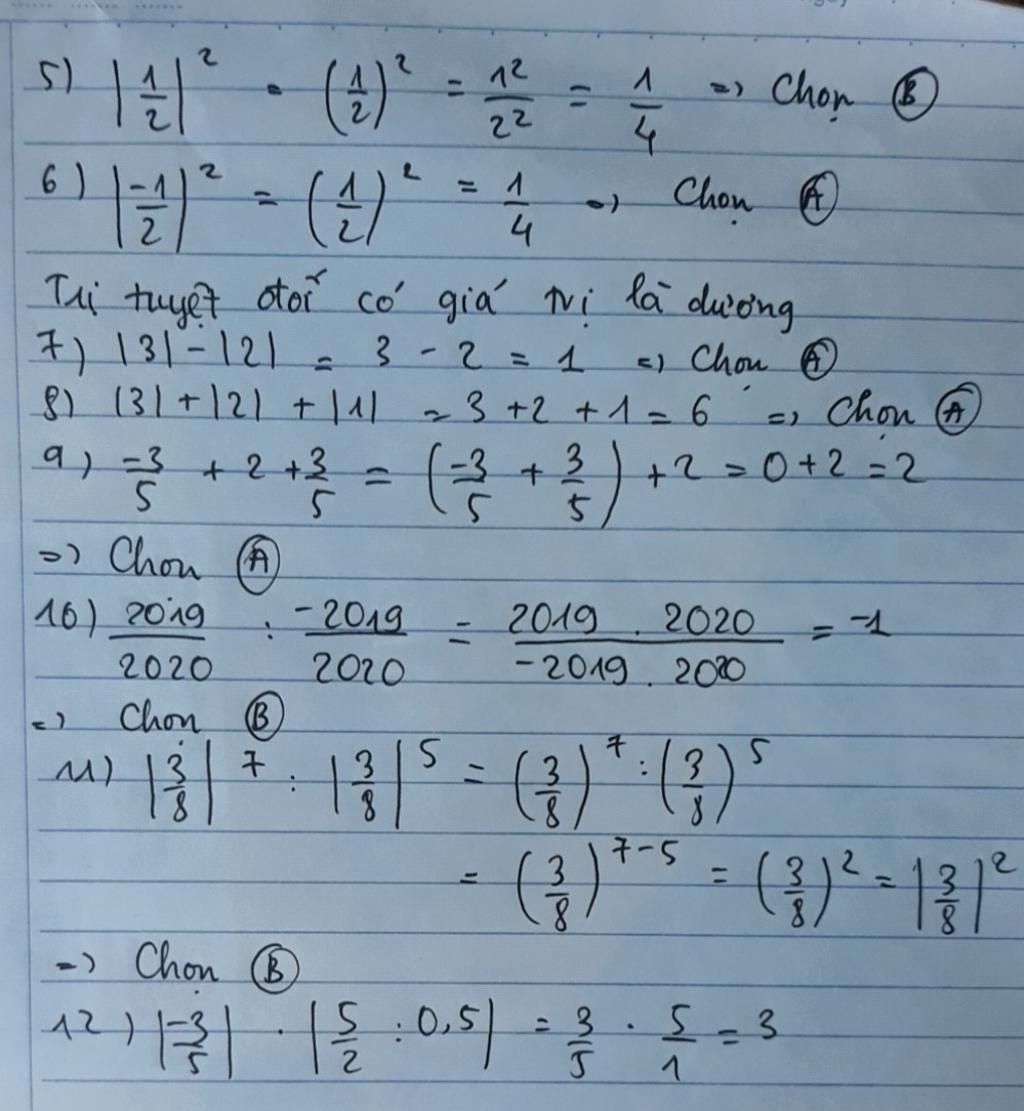 5) |1/2|² = (1/2)² = 1²/2² = 1/4 => Chọn Ⓑ
6) |-1/2|² = (1/2)² = 1/4 => Chọn Ⓐ
Trị tuyệt đối có giá trị là dương
7) |3| - |2| = 3 - 2 = 1 => Chọn Ⓐ
8) |3| + |2| + |1| = 3 + 2 + 1 = 6 => Chọn Ⓐ
9) -3/5 + 2 + 3/5 = (-3/5 + 3/5) + 2 = 0 + 2 = 2
=> Chọn Ⓐ
10) 2019/2020 : -2019/2020 = 2019 . 2020/-2019 . 2020 = -1
=> Chọn Ⓑ
11) |3/8|⁷ : |3/8|⁵ = (3/8)⁷ : (3/8)⁵
= (3/8)⁷⁻⁵ = (3/8)² = |3/8|²
=> Chọn Ⓑ
12) |-3/5| . |5/2 : 0,5| = 3/5 . 5/1 = 3